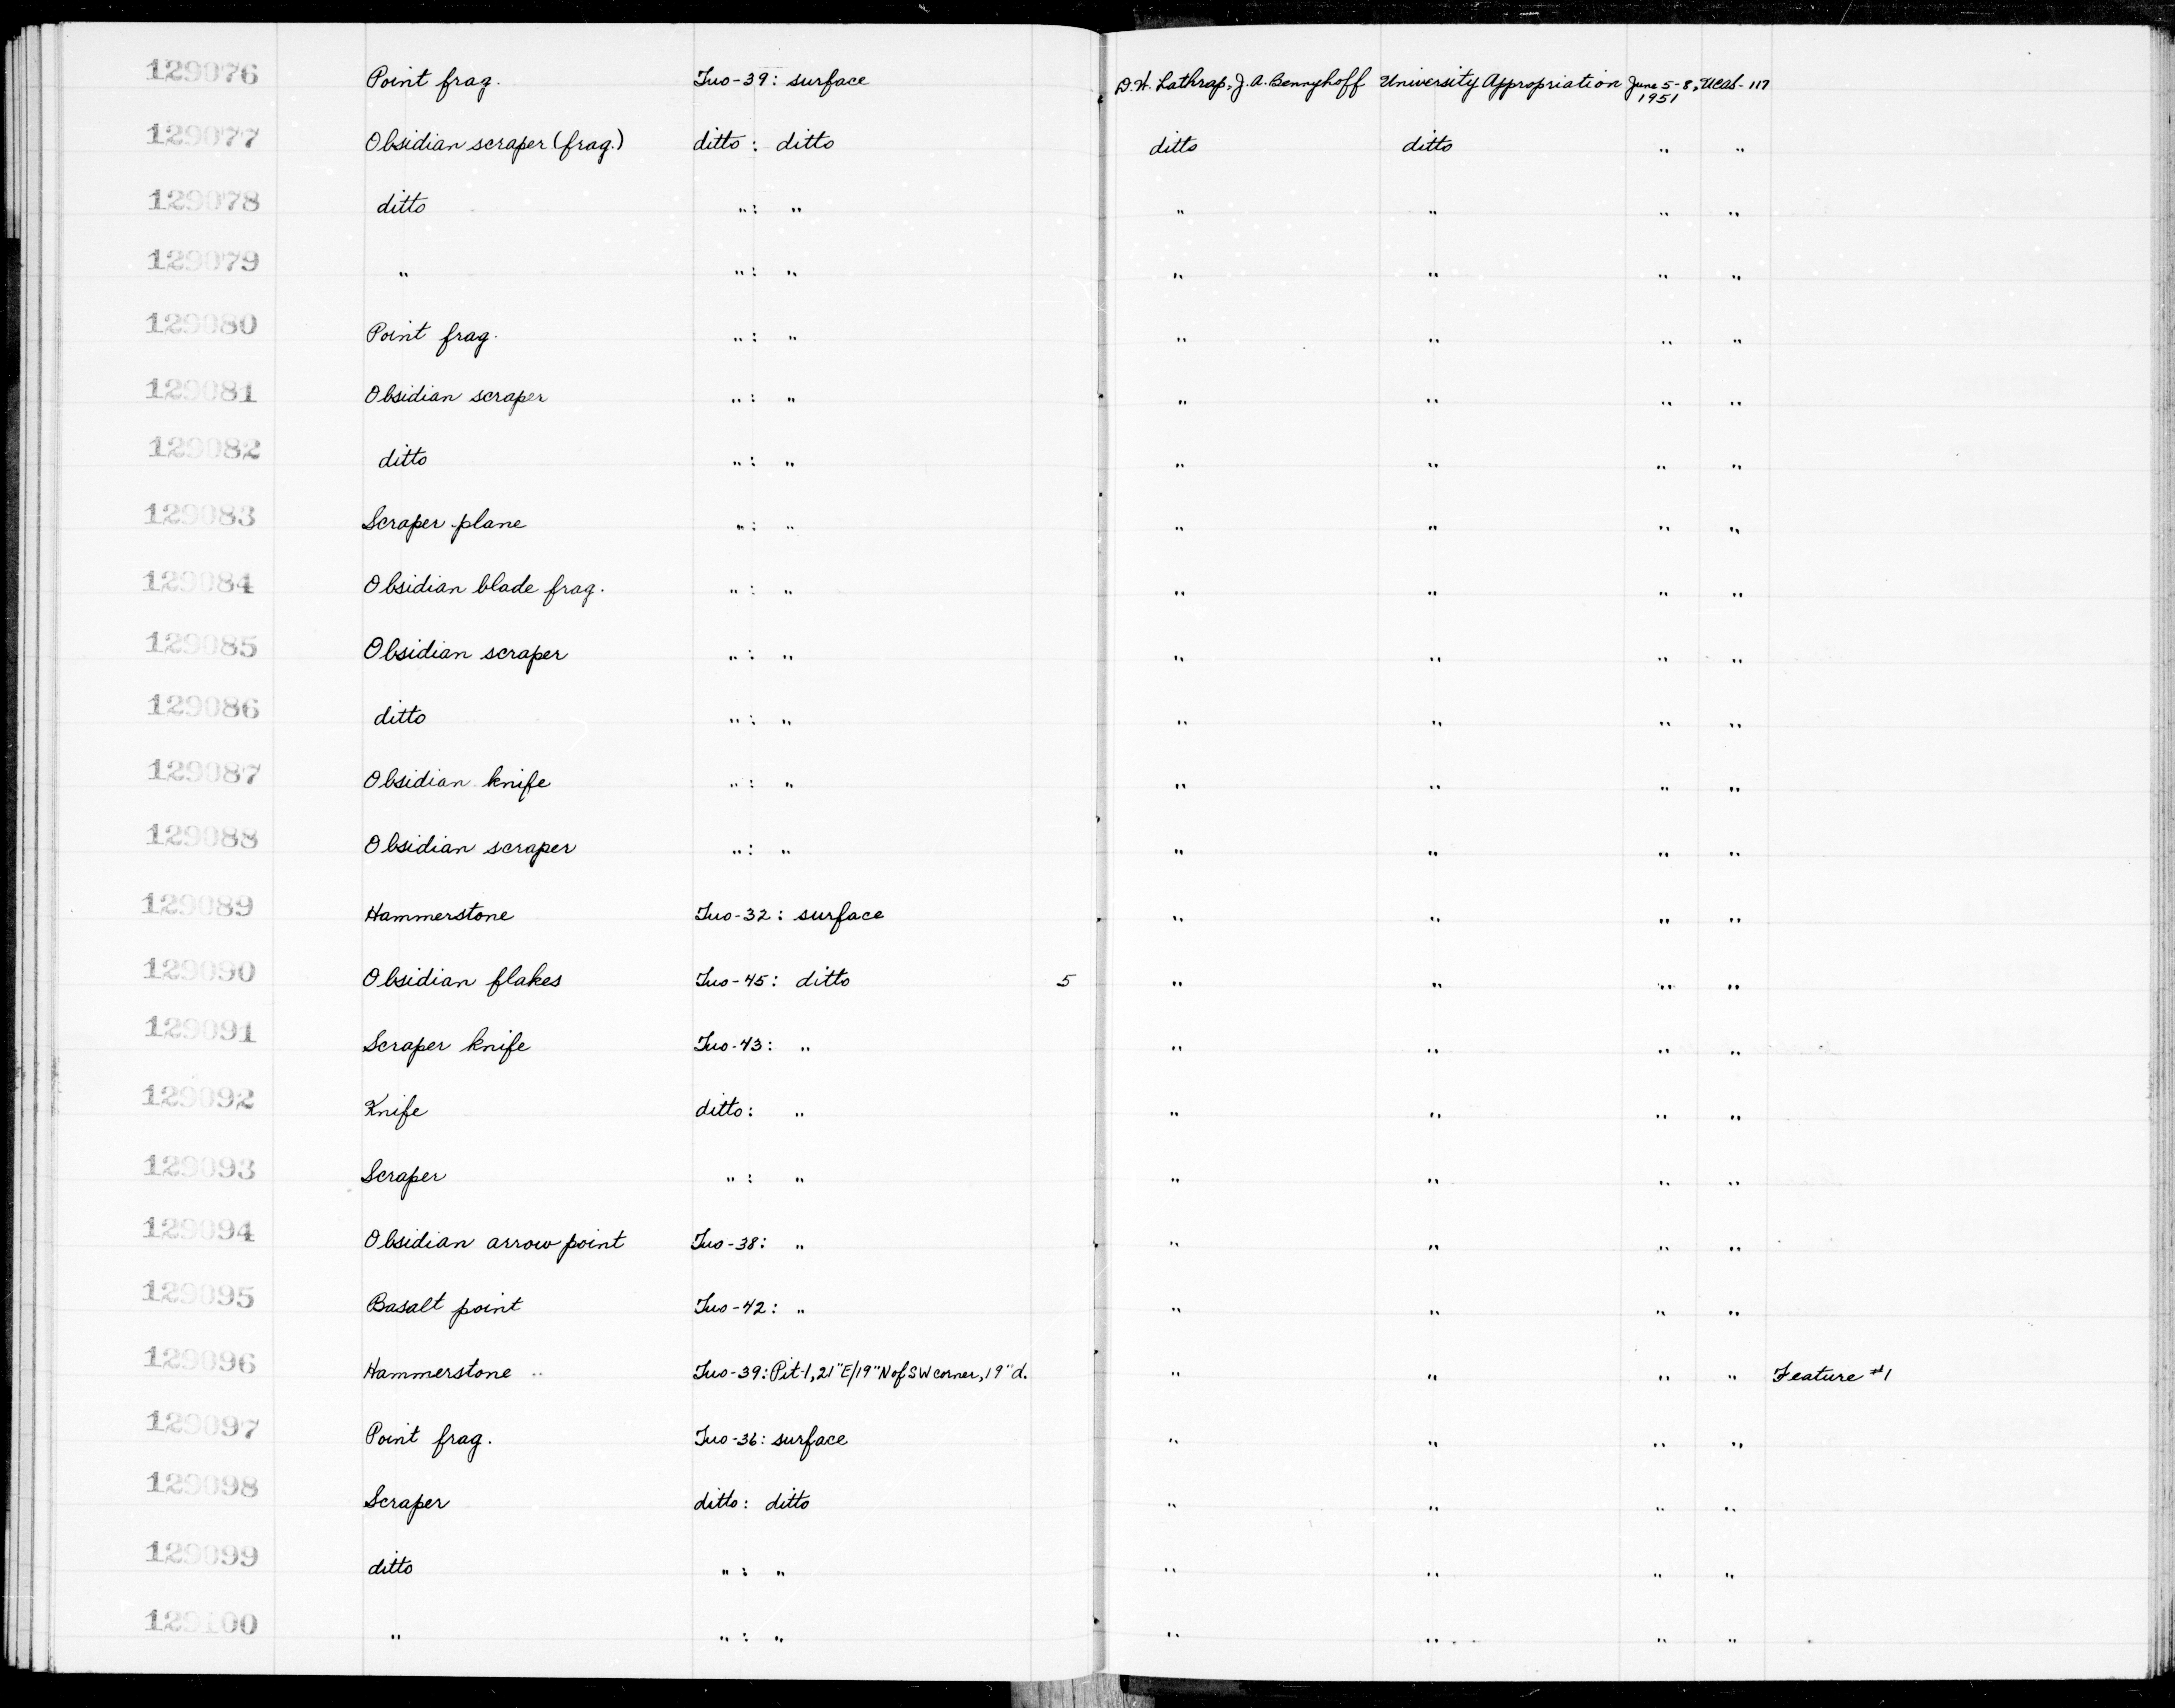 129076 Point frag. Tuo-39: surface D.W. Lathrap, J.A. Bennyhoff University Appropriation June 5-8, 1951 UCAS-117
129077 Obsidian scraper (frag.) ditto: ditto ditto ditto " "
129078 ditto ": " " " " "
129079 " ": " " " " "
129080 Point frag. ": " " " " "
129081 Obsidian scraper ": " " " " "
129082 ditto ": " " " " "
129083 Scraper plane ": " " " " "
129084 Obsidian blade frag. ": " " " " "
129085 Obsidian scraper ": " " " " "
129086 ditto ": " " " " "
129087 Obsidian knife ": " " " " "
129088 Obsidian scraper ": " " " " "
129089 Hammerstone Tuo-32: surface " " " "
129090 Obsidian flakes Tuo-45: ditto 5 " " " "
129091 Scraper knife Tuo-43: " " " " "
129092 Knife ditto: " " " " "
129093 Scraper ": " " " " "
129094 Obsidian arrow point Tuo-38: " " " " "
129095 Basalt point Tuo-42: " " " " "
129096 Hammerstone Tuo-39: Pit-1, 21"E/19"N of SW corner, 19"d. " " " " Feature #1
129097 Point frag. Tuo-36: surface " " " "
129098 Scraper ditto: ditto " " " "
129099 ditto ": " " " " "
129100 " ": " " " " "